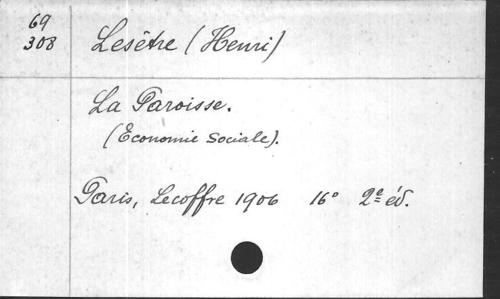 69
308
Lesêtre (Henri)
La Paroisse.
(Économie Sociale).
Paris, Lecoffre 1906 16° 2e éd.